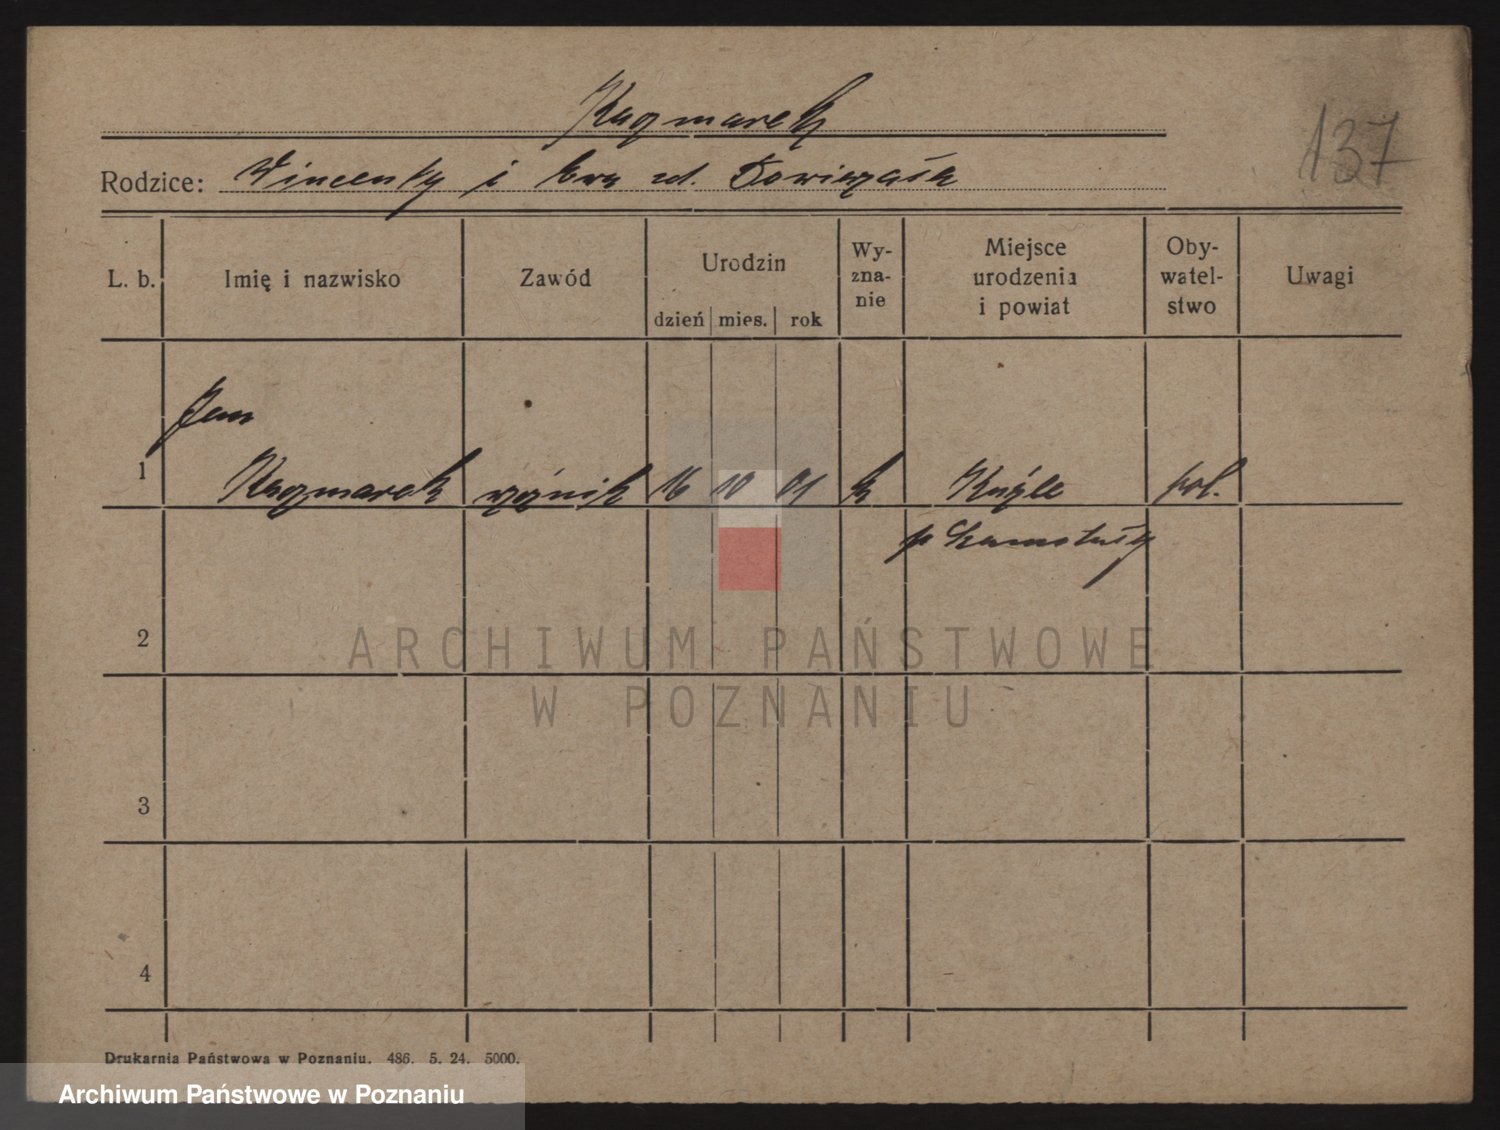 Kaczmarek
137
Rodzice: Wincenty i Ewa zd.
L. b. Imię i nazwisko Zawód Urodzin dzień mies. rok Wy-zna-nie Miejsce urodzenia i powiat Oby-watel-stwo Uwagi
Jan
1 Kaczmarek 16 10 01 k Kuźle pol.
p Szamotuły
2
3
4
Drukarnia Państwowa w Poznaniu. 486. 5. 24. 5000.
ARCHIWUM PAŃSTWOWE
W POZNANIU
Archiwum Państwowe w Poznaniu